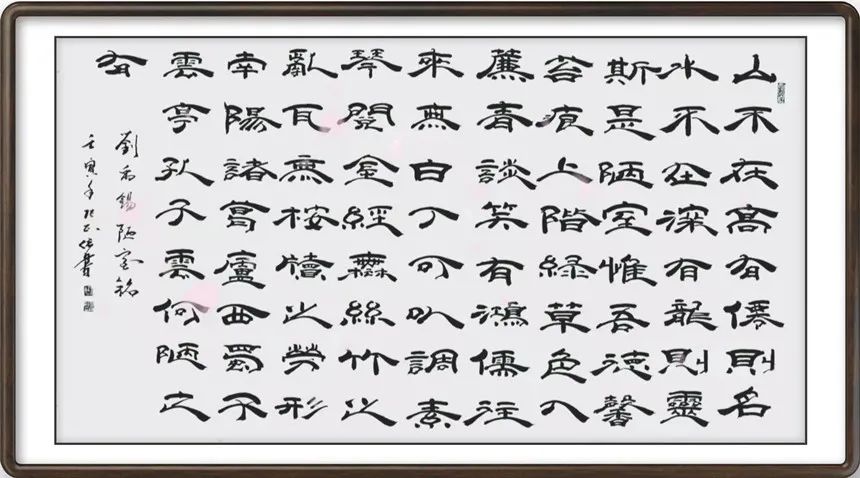 山不在高有僊則名
水不在深有龍則靈
斯是陋室惟吾德馨
苔痕上階緑草色入
簾青談笑有鴻儒往
來無白丁可以調素
琴閱金經無絲竹之
亂耳無桉牘之勞形
南陽諸葛廬西蜀子
雲亭孔子雲何陋之
有
劉禹錫陋室銘
壬寅年書